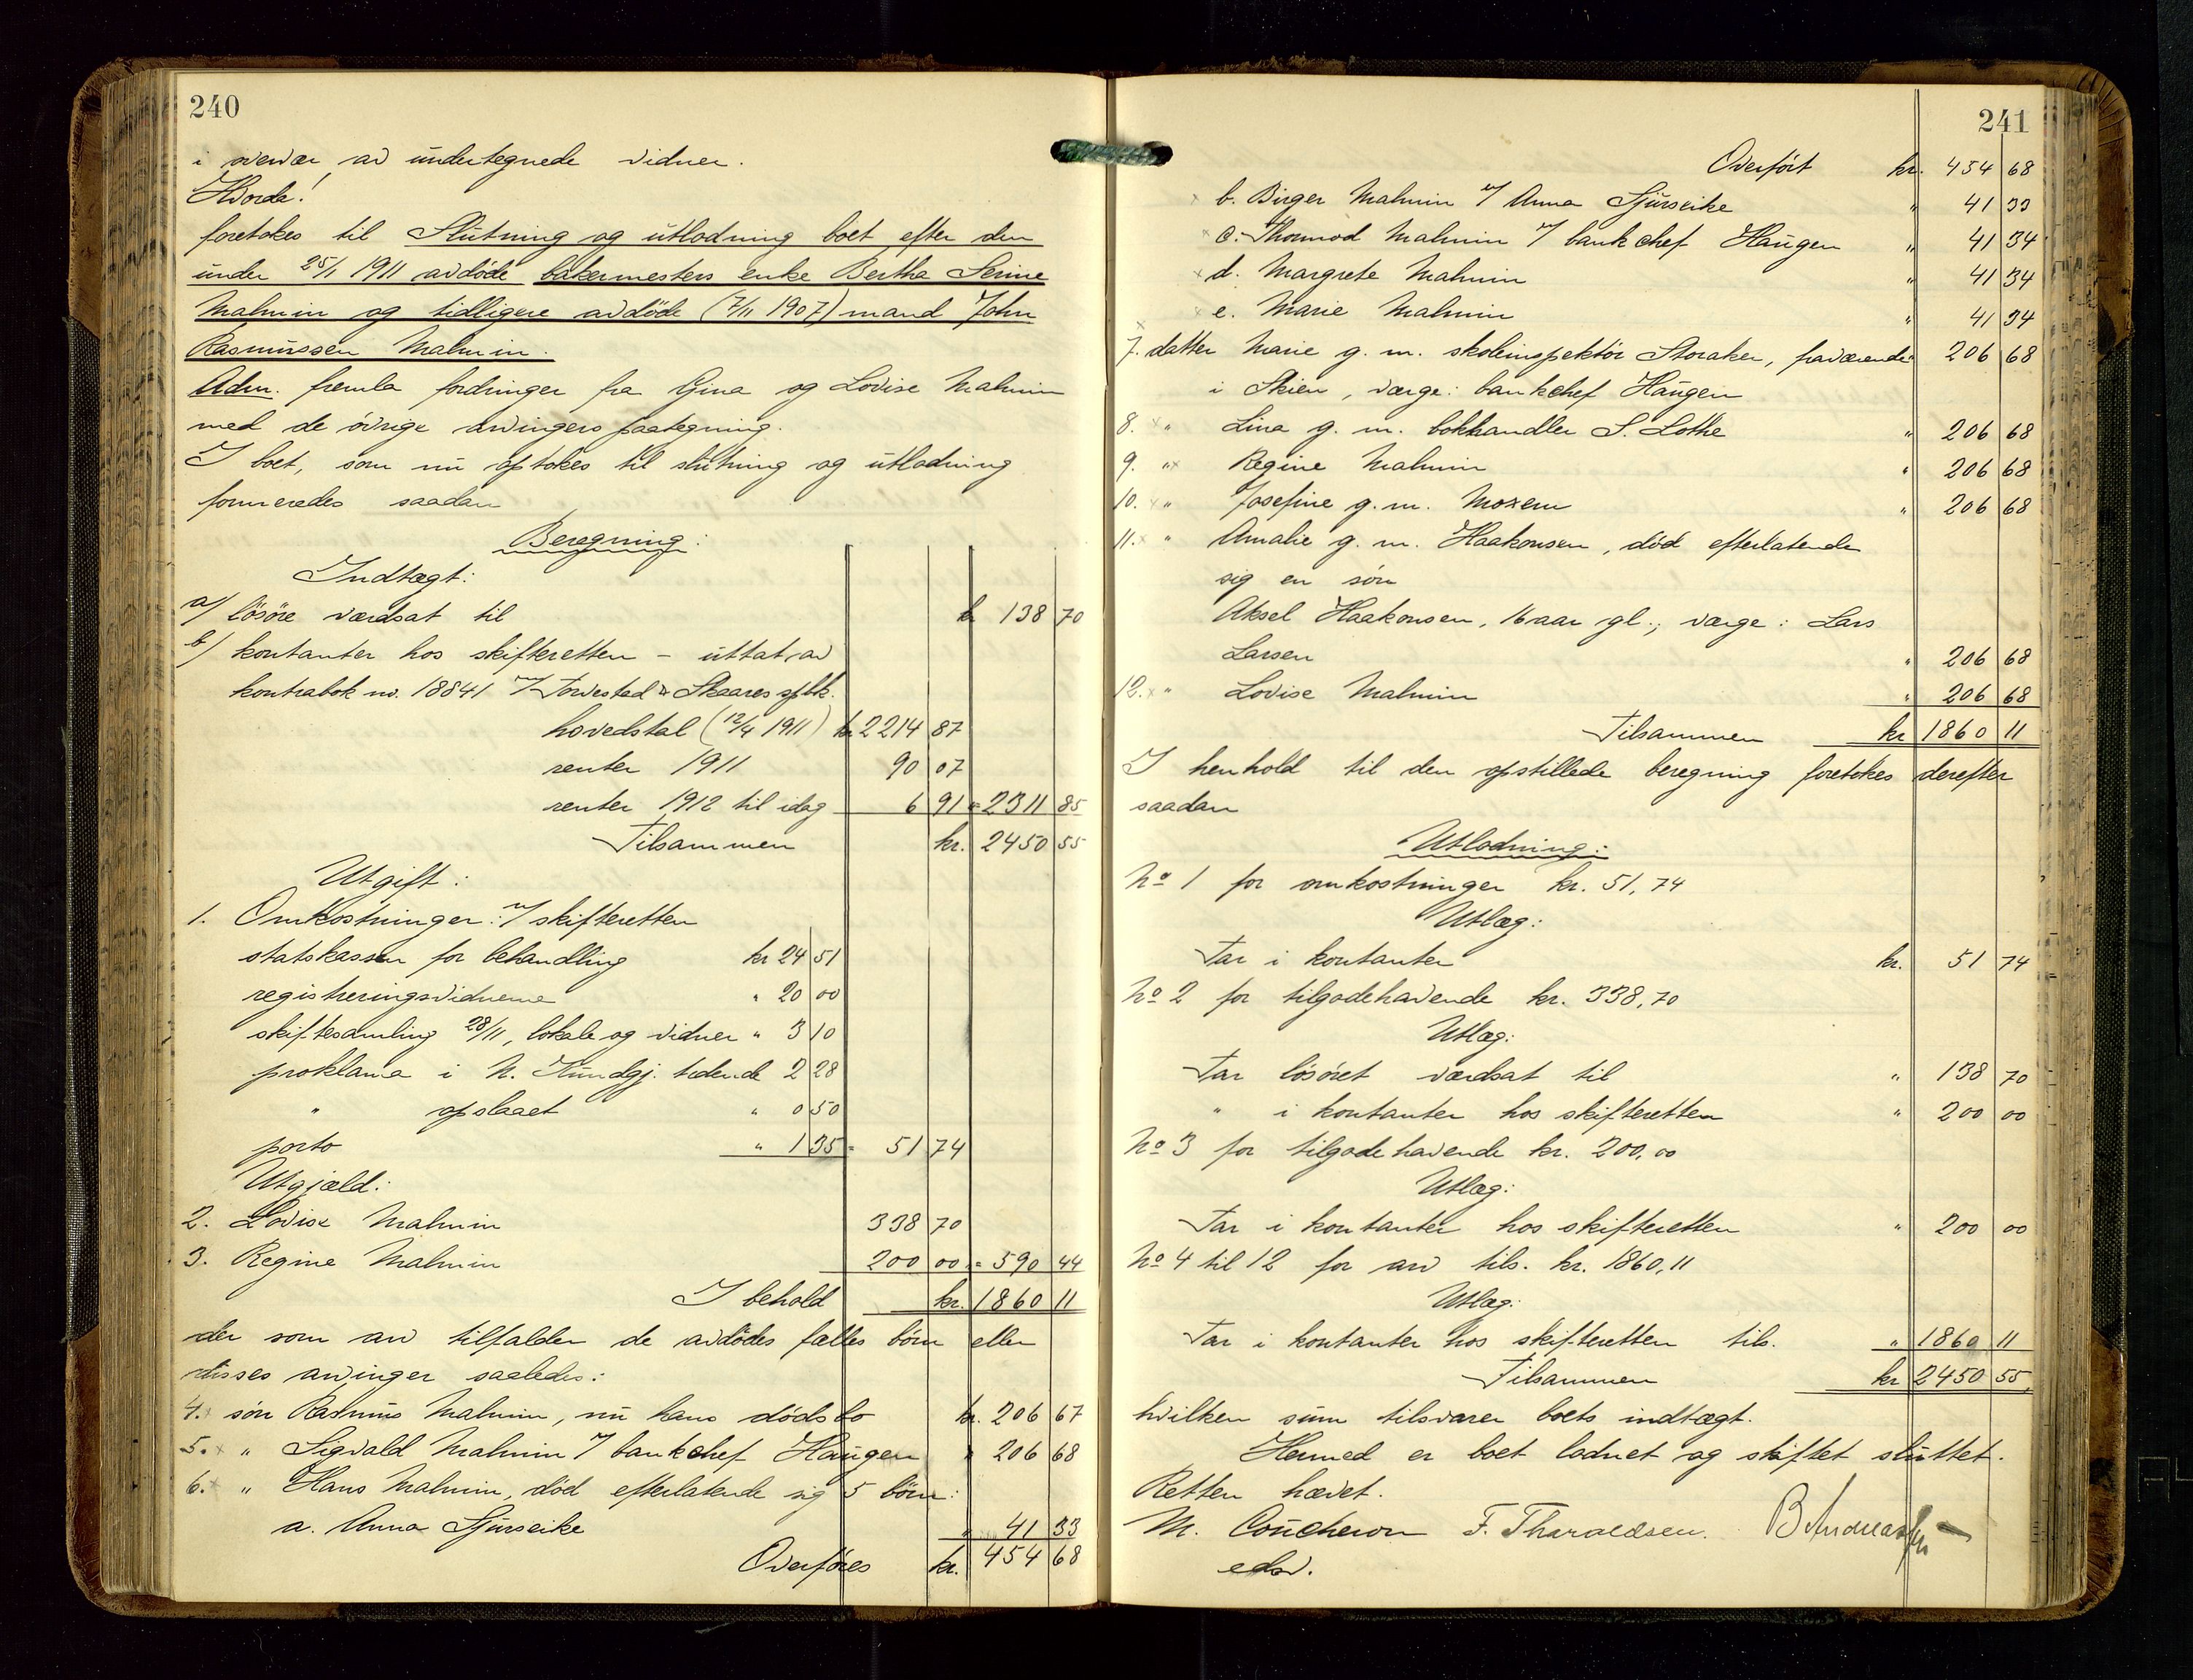 240
i overvær av undertegnede vidner.
Hvorda!
foretokes til Slutning og utlodning boet efter den
under 25/1 1911 avdøde bakermesters enke Bertha Serine
Malmin og tidligere avdøde (7/11 1907) mand John
Rasmussen Malmin.
Adm. fremla fordringer fra Gina og Lovise Malmin
med de övrige arvingers paategning.
I boet, som nu optokes til slutning og utlodning
formeredes saadan
Beregning:
Indtægt:
a/ lösöre værdsat til kr 138 70
b/ kontanter hos skifteretten – uttat av
kontrabok no. 18841 i/ Torvestad & Skaares spbk.
hovedstol (12/4 1911) kr 2214 87
renter 1911 90 07
renter 1912 til idag 6 91 = 2311 85
Tilsammen kr. 2450 55
Utgift:
1. Omkostninger: v/ skifteretten
statskassen for behandling kr 24 51
registreringsvidnerne " 20 00
skiftesamling 28/11, lokale og vidner " 3 10
proklama i N. Kundgj. tidende 2 28
" opslaaet " 0 50
porto " 1 35 = 51 74
Utgjæld:
2. Lovise Malmin 338 70
3. Regine Malmin 200 00 = 590 44
I behold kr. 1860 11
der som arv tilfalder de avdödes fælles börn eller
disses arvinger saaledes:
4. sön Rasmus Malmin, nu hans dödsbo kr. 206 67
5. x " Sigvald Malmin v/ bankchef Haugen " 206 68
6. x " Hans Malmin, död efterlatende sig 5 börn:
a. Anna Sjurseike " 41 33
Overföres kr. 454 68
241
Overfört kr. 454 68
x b. Birger Malmin v/ Anna Sjurseike " 41 33
x c. Thormod Malmin v/ bankchef Haugen " 41 34
x d. Margrete Malmin " 41 34
x e. Marie Malmin " 41 34
7. x datter Marie g. m. skoleinspektör Storaker, fraværende 206 68
i Skien, værge: bankchef Haugen
8. x " Lina g. m. bokhandler S. Lothe " 206 68
9. x " Regine Malmin " 206 68
10. x " Josefine g. m. Moxem " 206 68
11. x " Amalie g. m. Haakonsen, död efterlatende
sig en sön
Aksel Haakonsen, 16 aar gl.; værge: Lars
Larsen " 206 68
12. x " Lovise Malmin " 206 68
Tilsammen kr 1860 11
I henhold til den opstillede beregning foretokes derefter
saadan
Utlodning:
No 1 for omkostninger kr. 51,74
Utlæg:
Tar i kontanter kr. 51 74
No 2 for tilgodehavende kr. 338,70
Utlæg:
Tar lösöret værdsat til " 138 70
" i kontanter hos skifteretten " 200 00
No 3 for tilgodehavende kr. 200,00
Utlæg:
Tar i kontanter hos skifteretten " 200 00
No 4 til 12 for arv tils. kr. 1860,11
Utlæg:
Tar i kontanter hos skifteretten tils. " 1860 11
Tilsammen kr 2450 55
hvilken sum tilsvarer boets indtægt.
Hermed er boet lodnet og skiftet sluttet.
Retten hævet.
M. Coucheron F. Tharaldsen. B Andreassen
edsv.